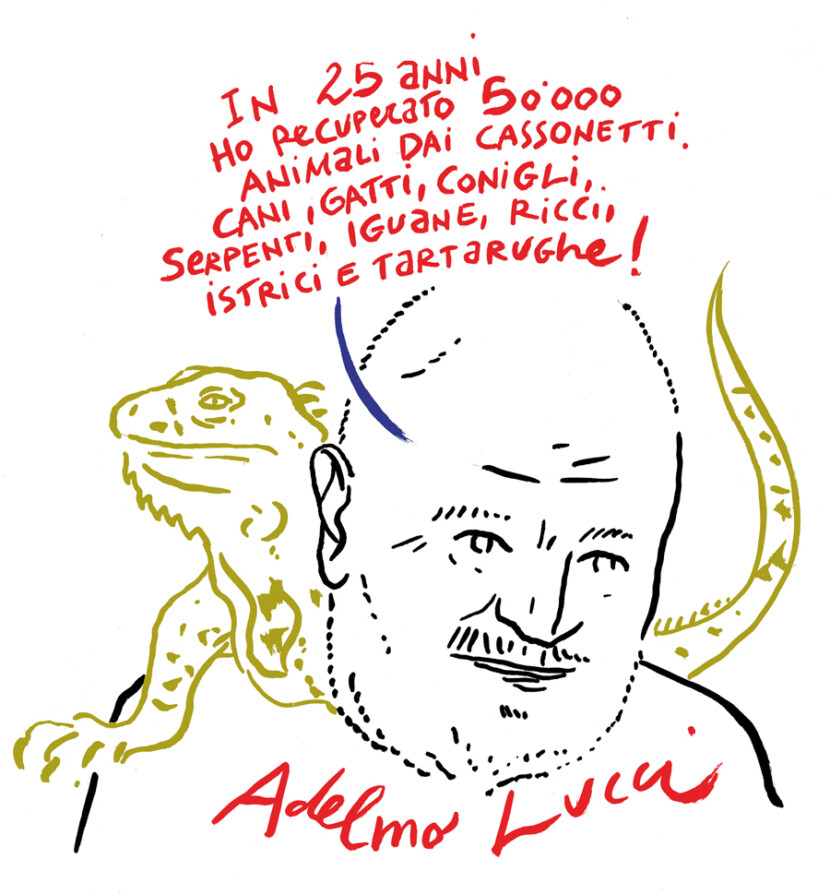 In 25 anni
Ho recuperato 50'000
animali dai cassonetti.
Cani, gatti, conigli,
serpenti, iguane, ricci,
istrici e tartarughe!
Adelmo Lucci